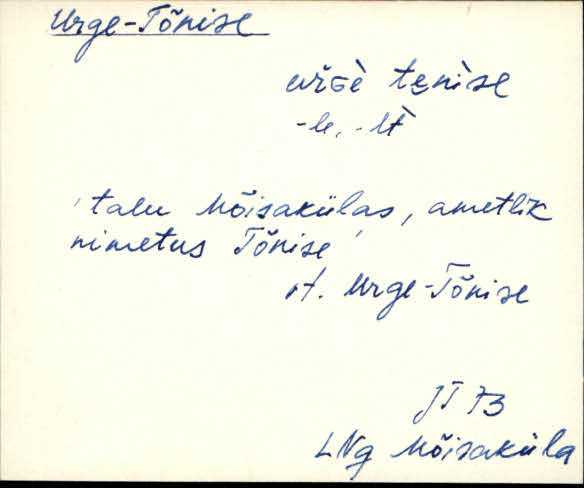 Urge-Tõnise
urɢè te̮nìse
-le, -lt
'talu Mõisakülas, ametlik
nimetus Tõnise'
rt. Urge-Tõnise
JT 73
LNg Mõisaküla